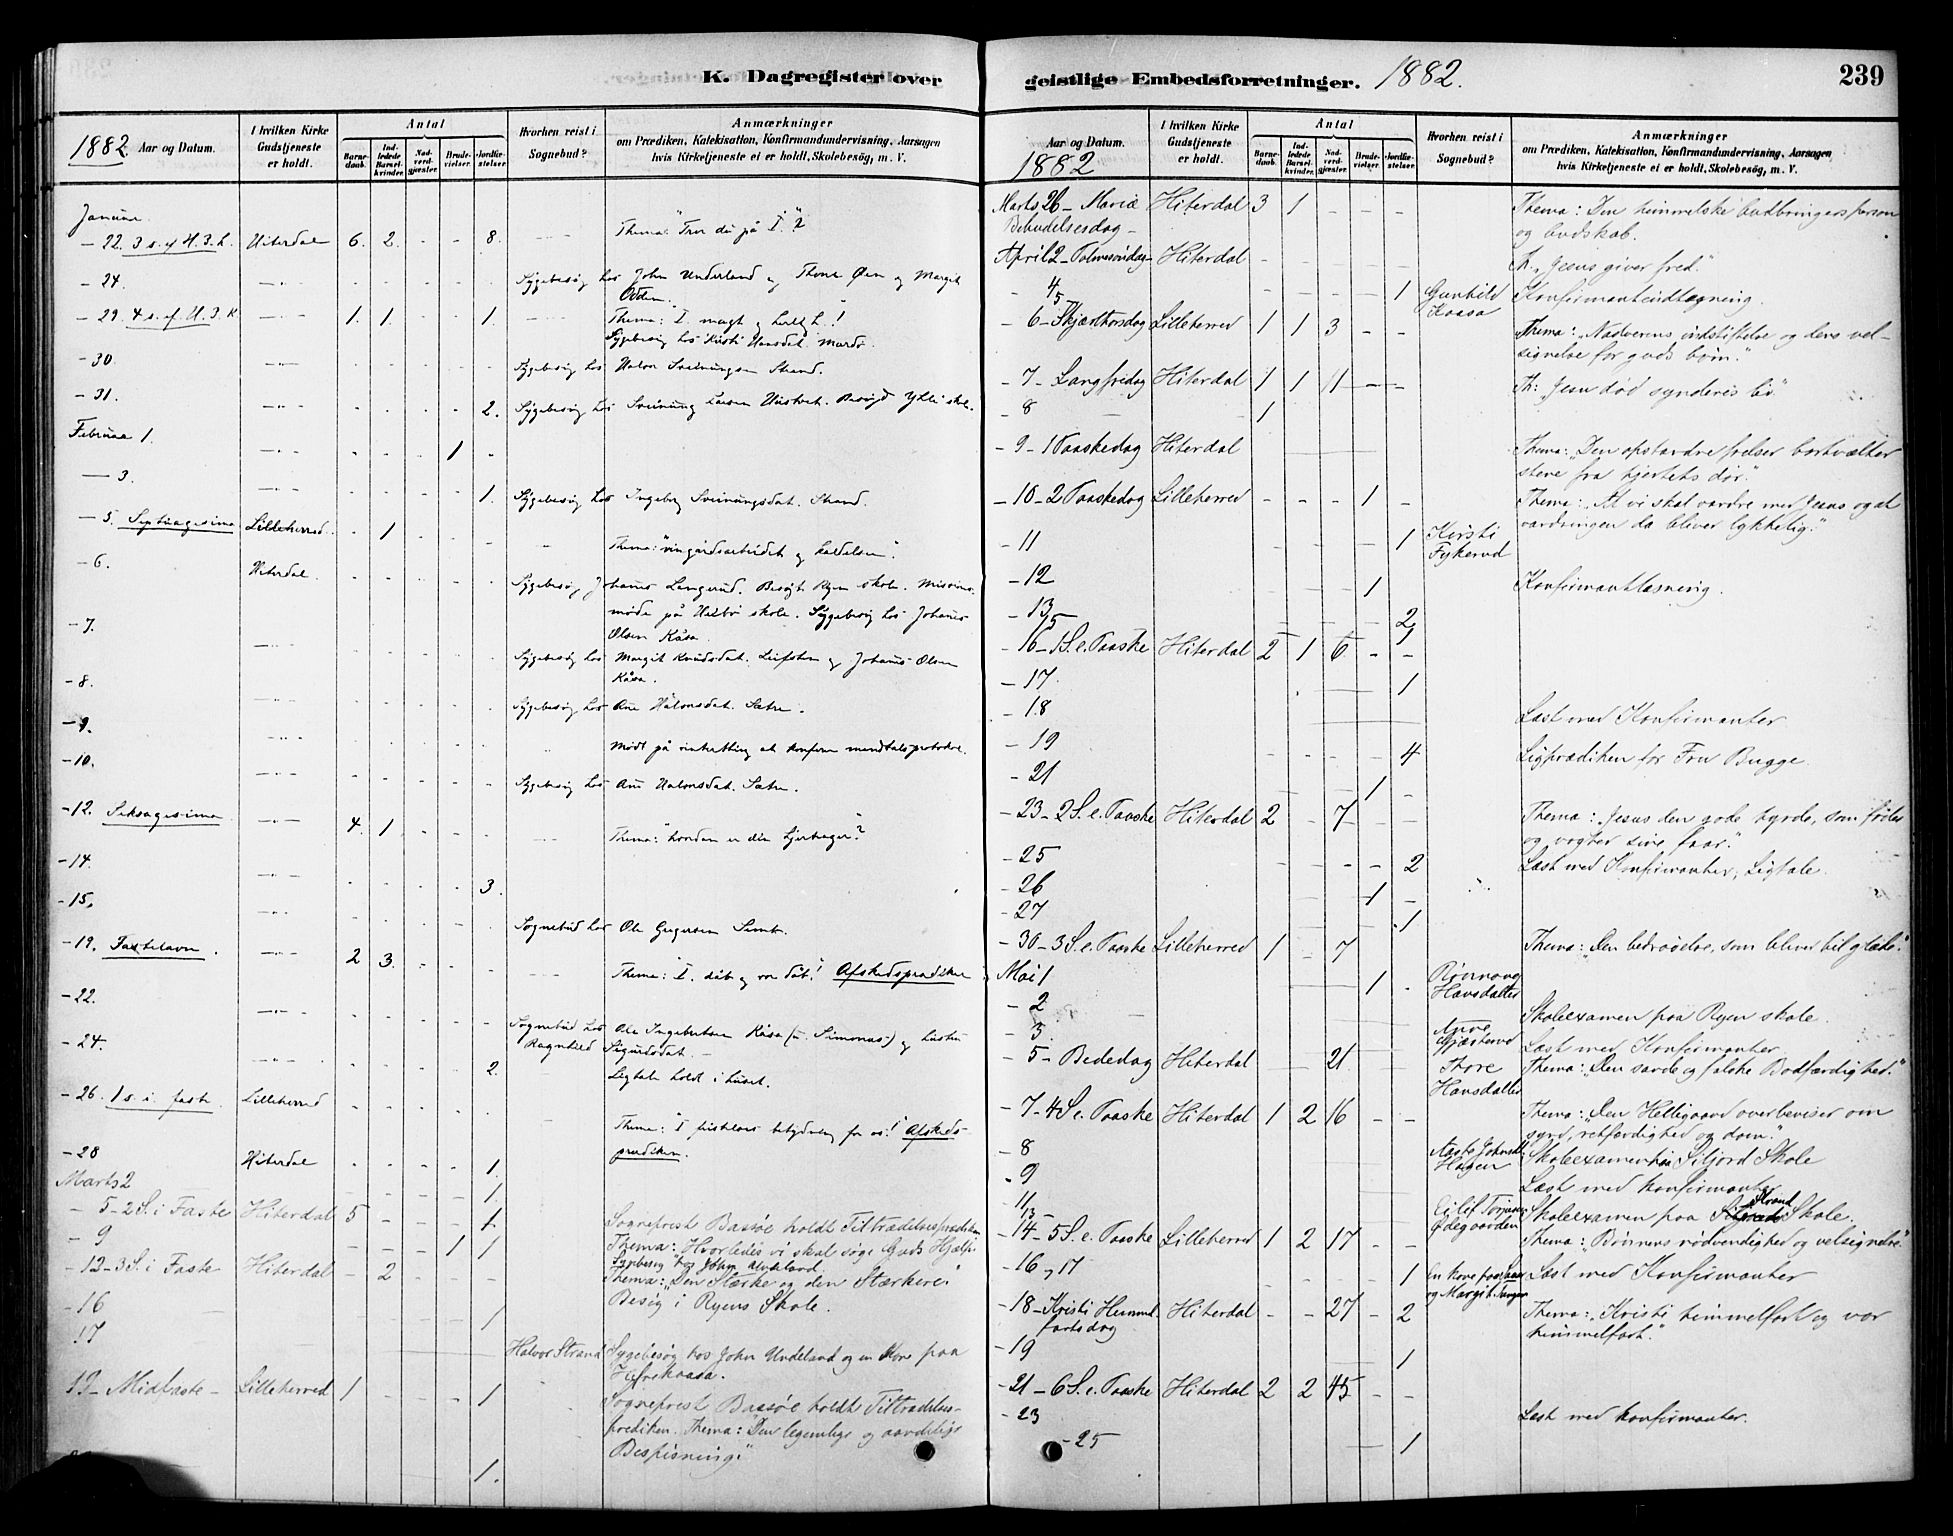 K. Dagregister over geistlige Embedsforretninger. 1882. 239
1882. Aar og Datum.
I hvilken Kirke Gudstjeneste er holdt.
Antal
Barnedaab.
Indledede Barselkvinder.
Nadverdgjæster.
Brudevielser.
Jordfæstelser.
Hvorhen reist i Sognebud?
Anmærkninger
om Prædiken, Katekisation, Konfirmandundervisning, Aarsagen
hvis Kirketjeneste ei er holdt, Skolebesög, m. V.
Januar
- 22. 3 s. ef H. 3. k. Hiterdal 6. 2. - - 8. Thema: "Tror du på I."?
- 24. Sygebesög hos John Underland og Thone Øen og Margit
Odden.
- 29. 4 s. ef H. 3. K 1. 1. 1. Thema: I. magt og herligh.!
Sygebesög hos Kisti Hansdat.
- 30. Sygebesög hos Halvor Sveinungsen Strand.
- 31. 2. Sygebesög hos Sveinung Larsen Besögt Ytli skole.
Februar 1. 1
- 3. 1. Sygebesög hos Ingebrg Sveinungsdat. Strand.
- 5. Septuagesima Lilleherred. - 1 Thema: "vingårdsarbeidet og kaldelsen".
- 6. Hiterdal. Sygebesög Johannes Langerud. Besögt Ryen skole. Missions-
møde på skole. Sygebesög hos Johannes
Olsen Kåsa.
- 7. Sygebesög hos Margit Knudsdat. og Johannes Olsen
Kåsa.
- 8. Sygebesög hos Ane Halvorsdat. Sætre.
- 9. Mödt på
- 10. Sygebesög hos Ane Halvorsdat. Sætre.
- 12. Seksagesima 4. 1 Thema: "hvordan er din hjerteager"?
- 14. 3.
- 15. Sognebud hos Ole Gregersen Semb.
- 19. Fastelavn. 2 3. Thema: "I. dåb og vor dåb"! Afskedsprædiken
- 22. Sognebud hos Ole Ingebretsen Kåsa (u. Simonus) og hustru
Ragnhild Sigurdsdat. -
- 24. 2. Ligtale holdt i huset.
- 26. 1 s. i. faste. Lilleherred Thema: "I fristelses betydning for os"! Afskeds-
prædiken.
- 28 Hiterdal 1.
Marts 2 1.
- 5 - 2 S. i Faste Hiterdal 5 - - - 1 Sogneprest Bassöe holdt Tiltrædelsesprædiken
- 9 - - - 1 1 Thema: Hvorledes vi skal søge Guds Hjælp.
- 12 - 3 S. i Faste Hiterdal - 2 Sygebesög hos John
Thema: "Den Stærke og den Stærkere"
- 16 1 Besög i Ryens Skole.
17 Halvor Strand Sygebesög hos John Undeland og en Kone paa
kaasa.
19 - Midfaste - Lilleherred 1 - - - 1 Sogneprest Bassöe holdt Tiltrædelses-
prædiken. Thema: "Den legemlige og aandelige
Bespisning."
1.
Aar og Datum.
1882
I hvilken Kirke Gudstjeneste er holdt.
Antal
Barnedaab.
Indledede Barselkvinder.
Nadverdgjæster.
Brudevielser.
Jordfæstelser.
Hvorhen reist i Sognebud?
Anmærkninger
om Prædiken, Katekisation, Konfirmandundervisning, Aarsagen
hvis Kirketjeneste ei er holdt, Skolebesög, m. V.
Marts 26 - Mariæ Hiterdal 3 1 - - - Thema: Den himmelske budbringers person
Bebudelsesdag - og budskab.
April 2 - Palmesöndag - Hiterdal - - - - - Th. "Jesus giver fred."
- 4/5 1 Gunhild Kaasa Konfirmantindtegning.
- 6 - Skjærthorsdag Lilleherred 1 1 3 - - Thema: "Nadverens indstiftelse og dens vel-
signelse for guds børn."
- 7 - Langfredag Hiterdal 1 1 11 - - Th: "Jesu död synderes liv"
- 8 1
- 9 - 1 Paaskedag Hiterdal Thema: "Den opstandne frelser bortvælter
stene fra hjertets dør."
- 10 - 2 Paaskedag Lilleherred - - - 1 - Thema: "At vi skal vandre med Jesus og at
vandringen da bliver lykkelig."
- 11 1 Kirsti Fykerud
- 12 1 Konfirmantlæsning.
- 13/5 2
1
- 16 - 1 S. e. Paaske Hiterdal 2 1 6 - -
- 17. 1
- 18 Læst med Konfirmanter.
- 19 4 Ligprædiken for Fru Bugge.
- 21 1 -
- 23 - 2 S. e. Paaske Hiterdal 2 - 7 - - Thema: "Jesus den gode hyrde, som føder
og vogter sine faar."
- 25 2 Læst med Konfirmanter, Ligtale.
- 26 1 -
- 27 1
- 30 - 3 S. e. Paaske Lilleherred 1 - 7 Thema: "Den bedrøvelse, som bliver til glæde."
Mai 1 1 - Hansdatter
- 2 Skoleexamen paa Ryen skole.
- 3. Anne Læst med Konfirmanter
- 5 - Bededag Hiterdal 21 Thore Hansdatter Thema: "Den sande og falske Bodfærdighed."
- 7 - 4 S. e. Paaske Hiterdal 1 2 16 - - Thema: "Den Helligaand overbeviser om
synd, retfærdighed og dom."
- 8 Hagen Skoleexamen paa Siljord Skole
- 9 Læst med Konfirmanter
11/13 Eilef Ødegaarden Skoleexamen paa Strand Skole.
- 14 - 5 S. e. Paaske Lilleherred 1 2 17 - - Thema: "Bønnens nødvendighed og velsignelse."
- 16 og 17 1 En kone paa og Margit Læst med Konfirmanter
- 18 - Kristi Himmelfartsdag Hiterdal - - 27 - 2 Thema: "Kristi himmelfart og vor
himmelfart."
- 19 1
- 21 - 6 S. e. Paaske Hiterdal 2 2 45 - -
- 23 Læst med konfirmanter.
- 25 1